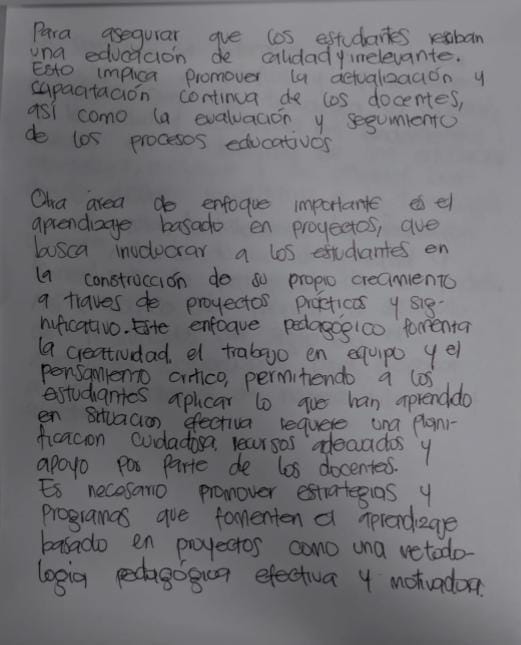 Para asegurar que los estudiantes reciban
una educación de calidad y irrelevante.
Esto implica promover la actualización y
capacitación continua de los docentes,
así como la evaluación y segumiento
de los procesos educativos
Otra área de enfoque importante es el
aprendizaje basado en proyectos, que
busca involucrar a los estudiantes en
la construcción de su propio crecimiento
a traves de proyectos prácticos y sig-
nificativo. Este enfoque pedagógico fomenta
la creatividad, el trabajo en equipo y el
pensamiento crítico, permitiendo a los
estudiantes aplicar lo que han aprendido
en situacion efectiva requiere una plani-
ficacion cuidadosa, recursos adecuados y
apoyo por parte de los docentes.
Es necesario promover estrategias y
programas que fomenten el aprendizaje
basado en proyectos como una metodo-
logia pedagógica efectiva y motivadora.